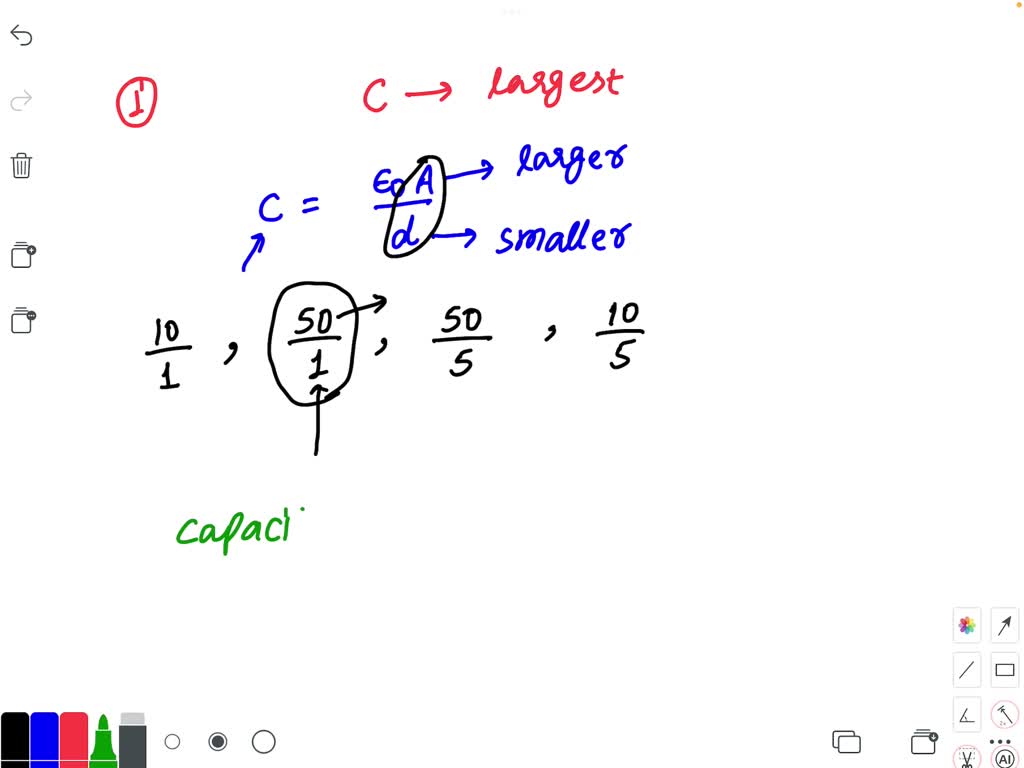 ① C → largest
C = ϵ₀A/d → larger → smaller
10/1 , 50/1 , 50/5 , 10/5
capaci
AI